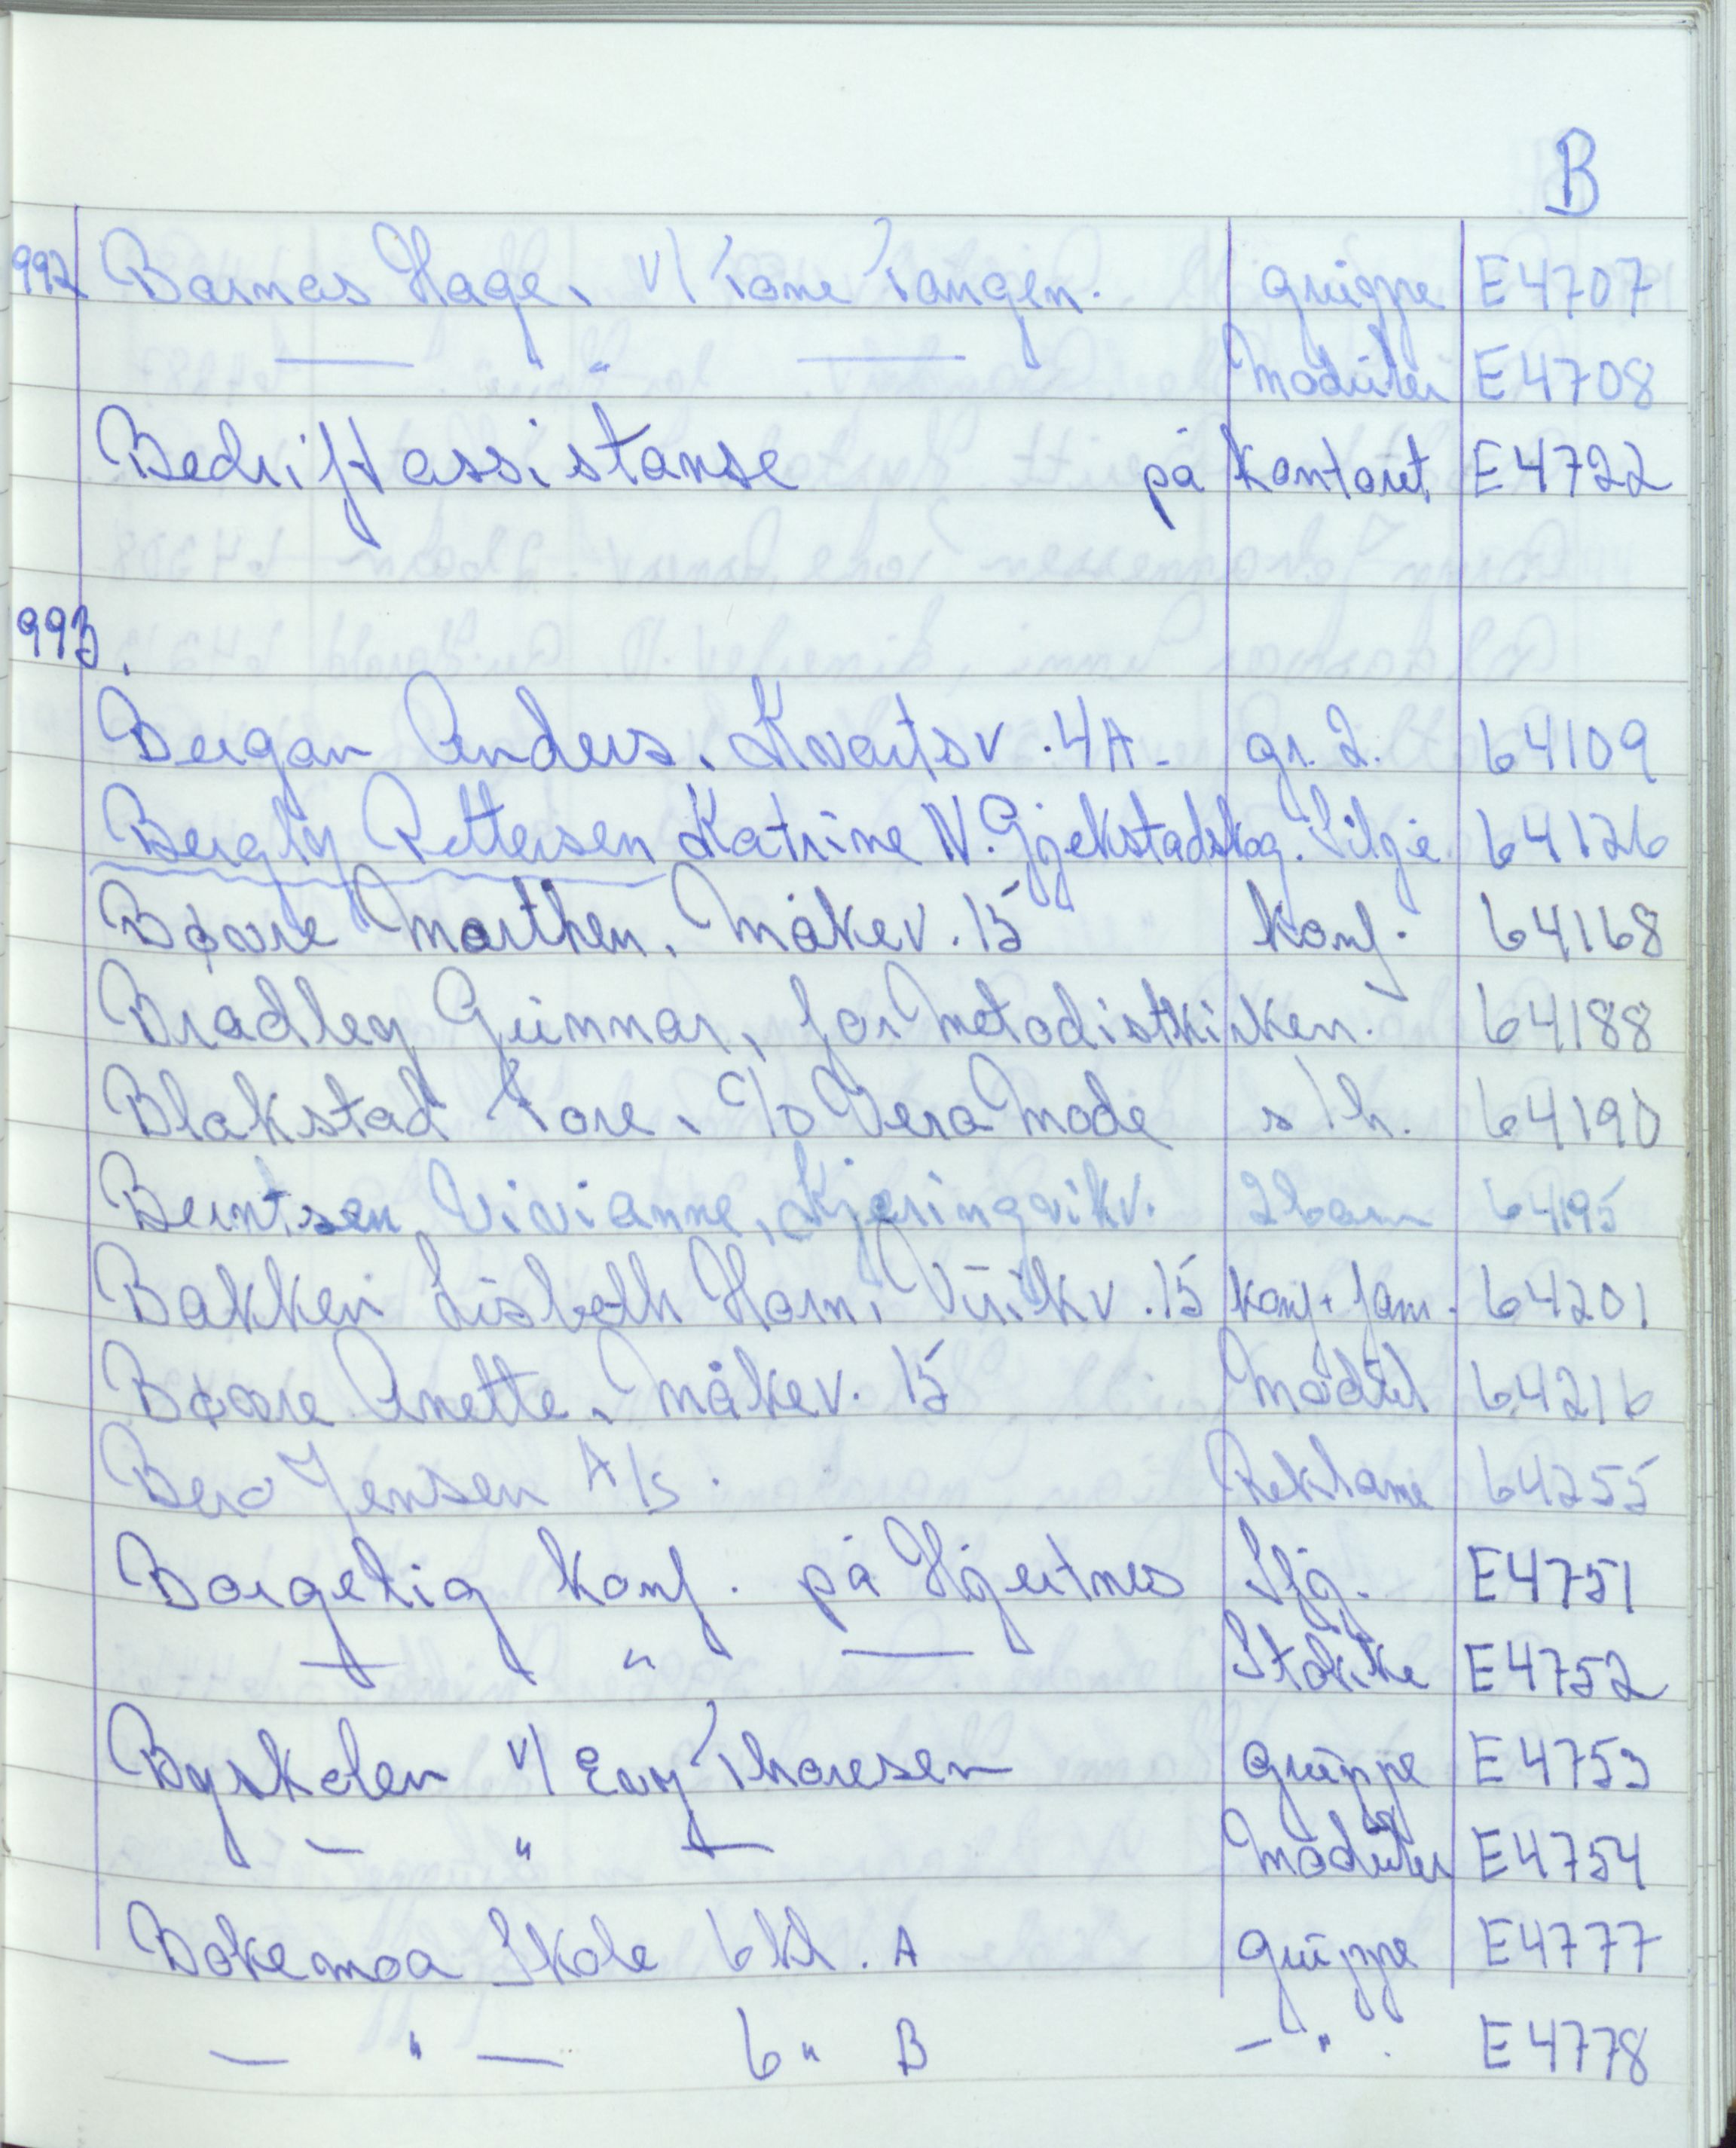 B
992 Barnas Hage. v/ Tone Tangen. gruppe E4707
— " — Moduler E4708
Bedriftassistanse på Kontoret. E4722
993.
Bergan Anders. Kvartsv. 4A. gr. 2. 64109
Bergly Pettersen Katrine N. Gjekstadskog. Silje 64126
Bøvre Marthen. Måkev. 15 Konf. 64168
Bradley Gunnar, for Metodistkirken. 64188
Blakstad Tore. c/o Vera Mode s/h. 64190
Berntsen Vivianne, Kjæringvikv. 2 barn 64195
Bakken Lisbeth Horn. Virikv. 15 Konf + fam. 64201
Bøvre Anette. Måkev. 15 Modul 64216
Berg Jensen A/S. Reklame 64255
Borgelig Konf. på Hjertnes Sfj. E4751
— " — Stokke E4752
Byskolen v/ Evy Thoresen gruppe E4753
— " — Moduler E4754
Bokemoa Skole 6 kl. A gruppe E4777
— " — 6 " B — " . E4778